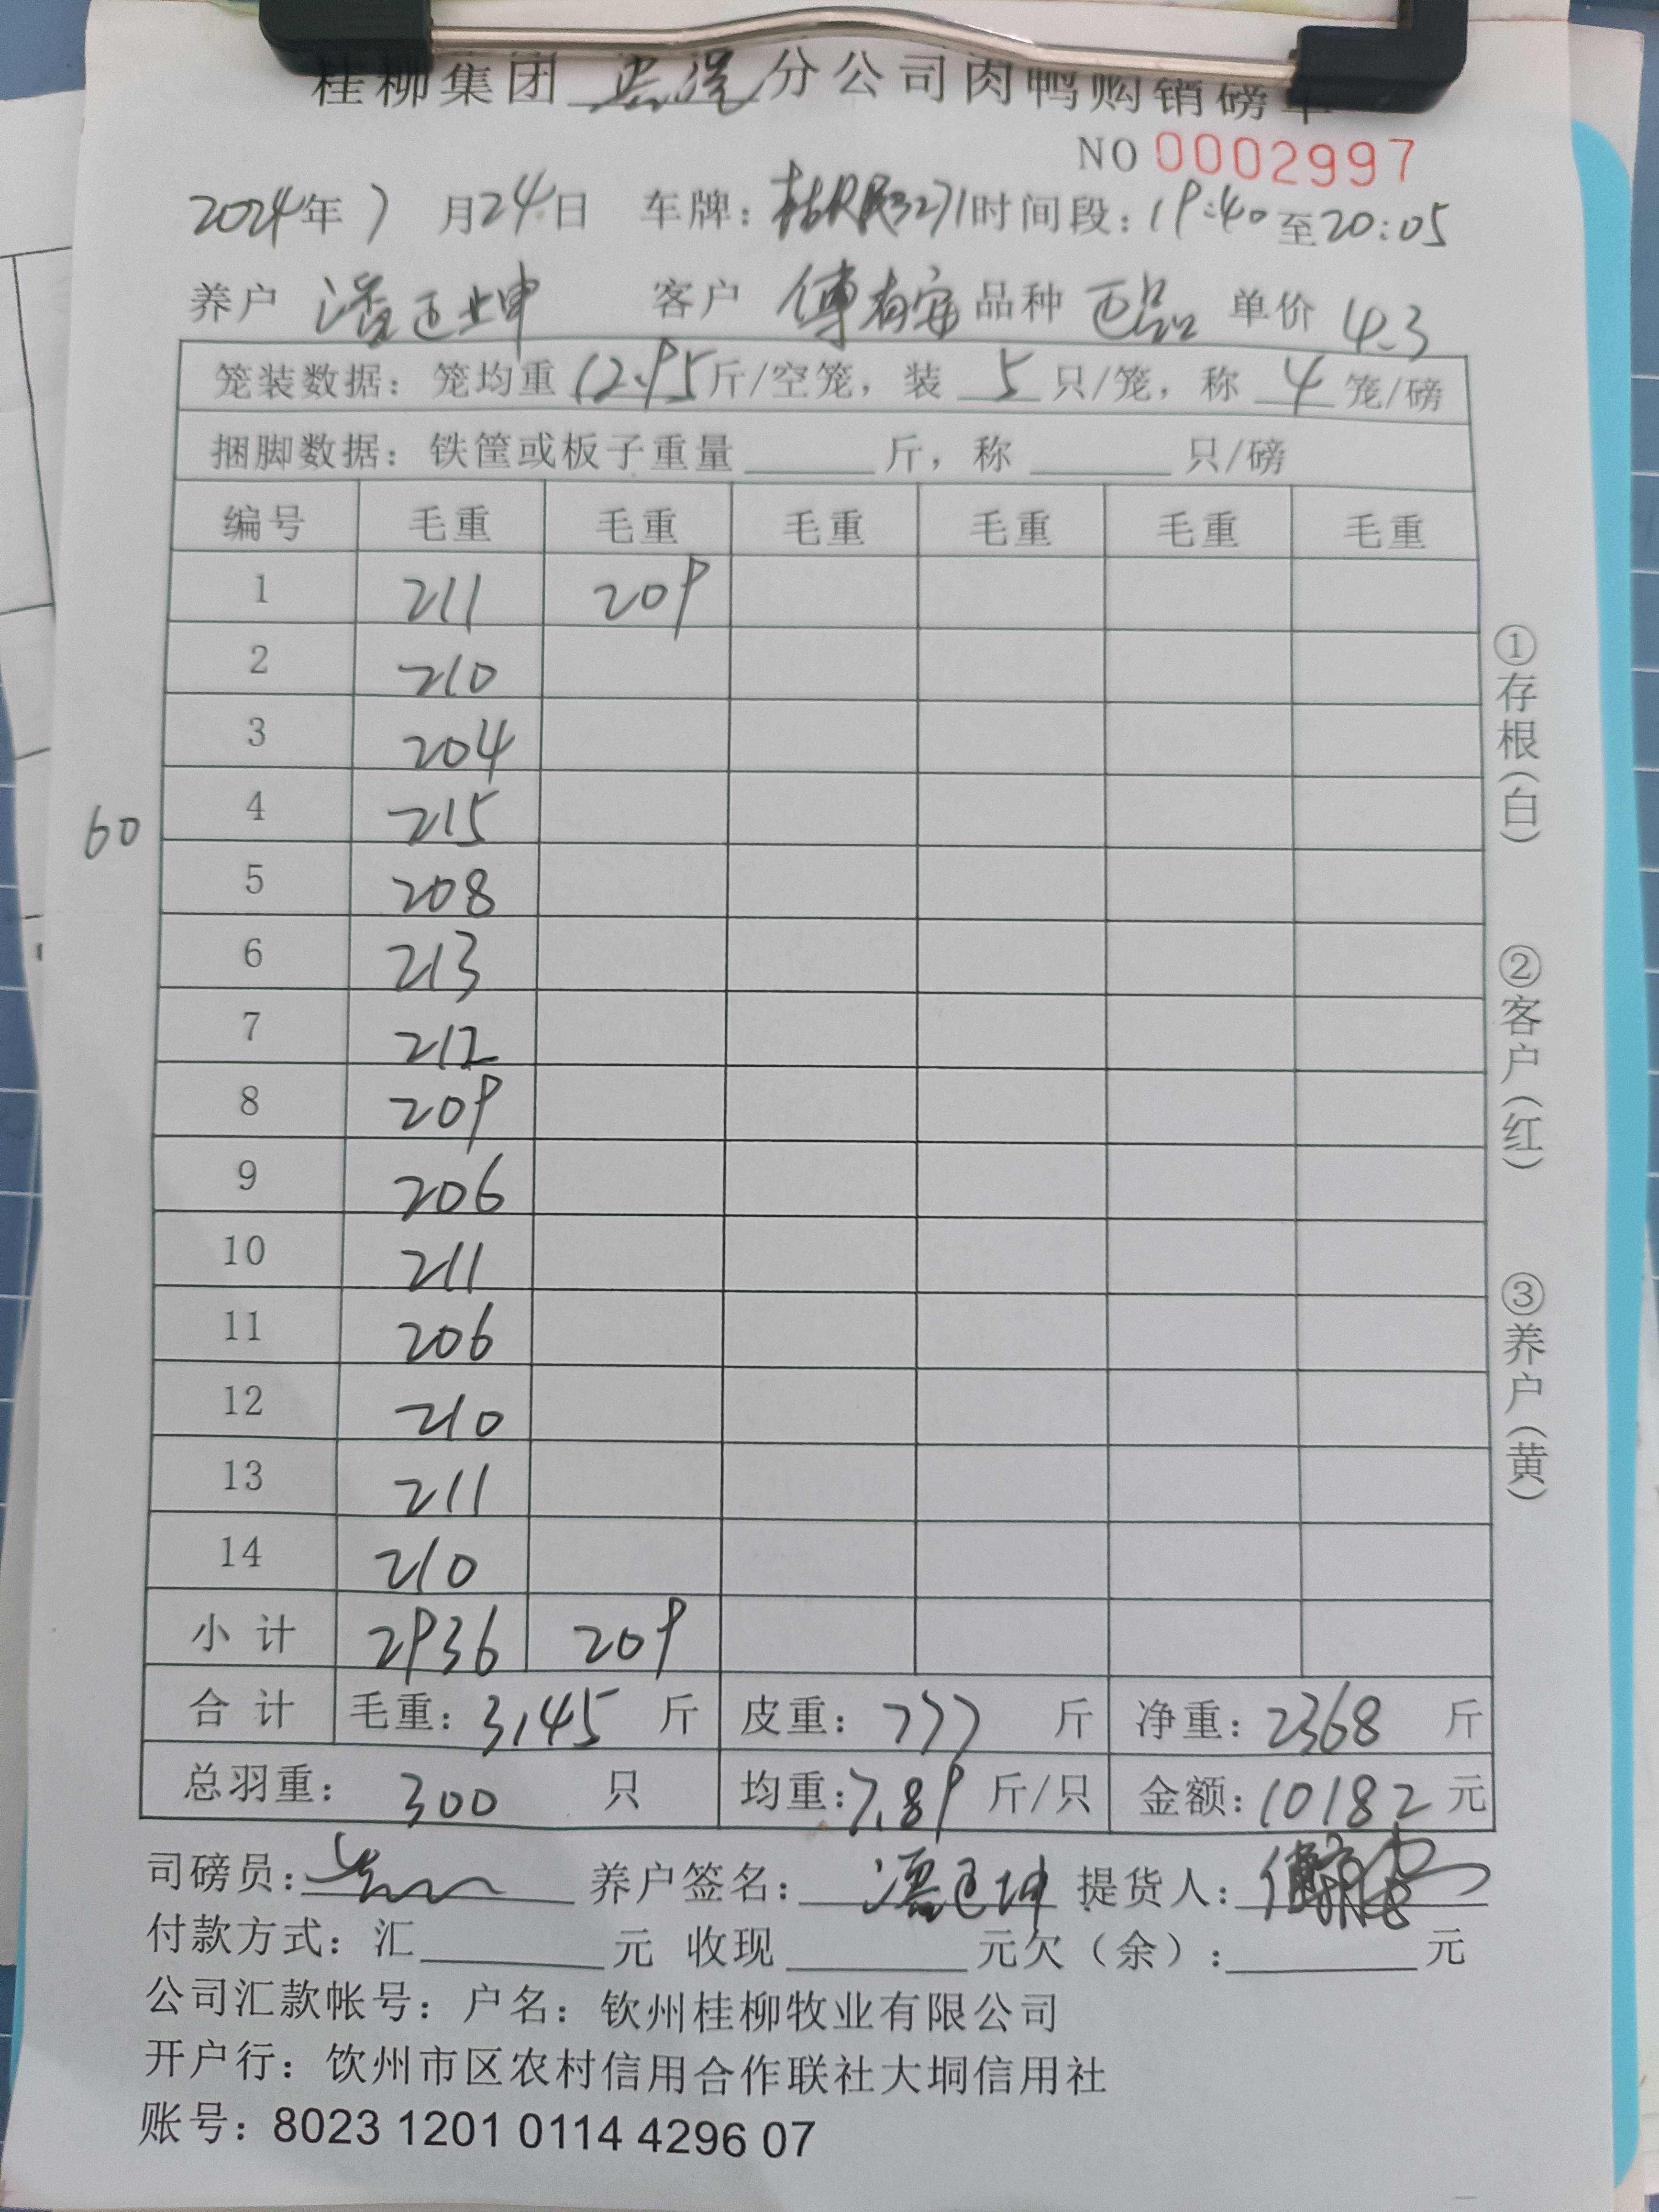 桂柳集团 分公司肉鸭购销磅单
NO 0002997
2024年 7 月24日 车牌: 时间段: 19:40 至20:05
养户 潘 坤 客户 傅有安 品种 单价 4.3
笼装数据: 笼均重 12.95 斤/空笼, 装 5 只/笼, 称 4 笼/磅
捆脚数据: 铁筐或板子重量 斤, 称 只/磅
编号 毛重 毛重 毛重 毛重 毛重 毛重
1 211 209
2 210
3 204
4 215
60
5 208
6 213
7 212
8 209
9 206
10 211
11 206
12 210
13 211
14 210
小计 2936 209
合计 毛重: 3145 斤 皮重: 777 斤 净重: 2368 斤
总羽重: 300 只 均重: 7.89 斤/只 金额: 10182 元
司磅员: 养户签名: 潘 坤 提货人:
付款方式: 汇 元 收现 元欠(余): 元
公司汇款帐号: 户名: 钦州桂柳牧业有限公司
开户行: 饮州市区农村信用合作联社大垌信用社
账号: 8023 1201 0114 4296 07
①存根(白)
②客户(红)
③养户(黄)